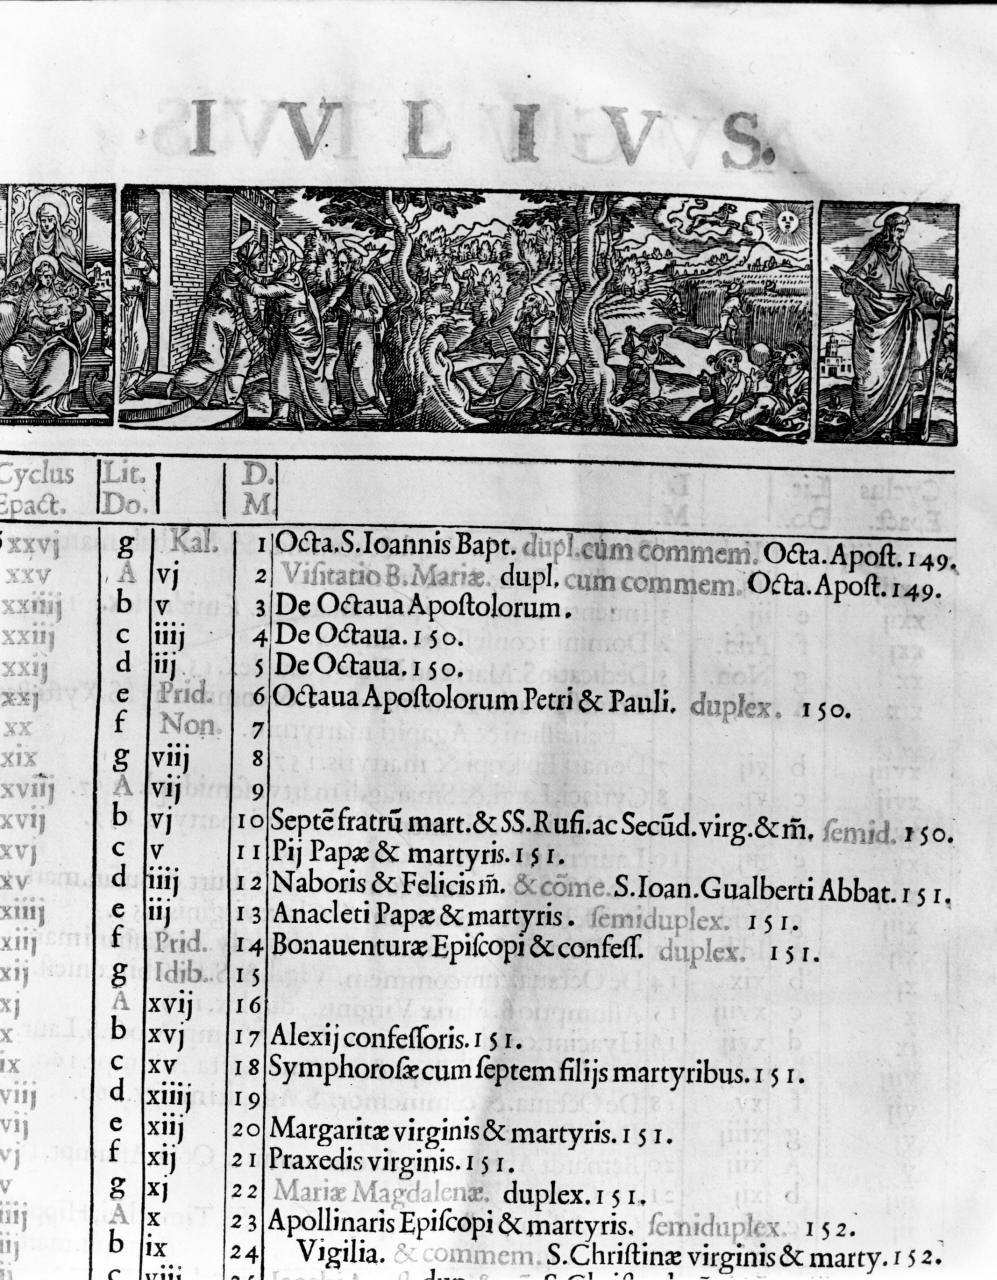 IVLIVS.
Cyclus Lit. D.
Epact. Do. M.
xxvj g Kal. 1 Octa.S.Ioannis Bapt. dupl.cum commem. Octa.Apost.149.
xxv A vj 2 Visitatio B.Mariæ. dupl. cum commem. Octa.Apost.149.
xxiiij b v 3 De Octaua Apostolorum.
xxiij c iiij 4 De Octaua.150.
xxij d iij 5 De Octaua.150.
xxj e Prid. 6 Octaua Apostolorum Petri & Pauli. duplex. 150.
xx f Non. 7
xix g viij 8
xviij A vij 9
xvij b vj 10 Septē fratrū mart.& SS.Rufi.ac Secūd.virg.& m̄. semid. 150.
xvj c v 11 Pij Papæ & martyris.151.
xv d iiij 12 Naboris & Felicis m̄. & cōme. S.Ioan.Gualberti Abbat.151.
xiiij e iij 13 Anacleti Papæ & martyris. semiduplex. 151.
xiij f Prid. 14 Bonauenturæ Episcopi & confess. duplex. 151.
xij g Idib. 15
xj A xvij 16
x b xvj 17 Alexij confessoris.151.
ix c xv 18 Symphorosæ cum septem filijs martyribus.151.
viij d xiiij 19
vij e xiij 20 Margaritæ virginis & martyris.151.
vj f xij 21 Praxedis virginis.151.
v g xj 22 Mariæ Magdalenæ. duplex.151.
iiij A x 23 Apollinaris Episcopi & martyris. semiduplex. 152.
iij b ix 24 Vigilia. & commem. S.Christinæ virginis & marty.152.
c viij